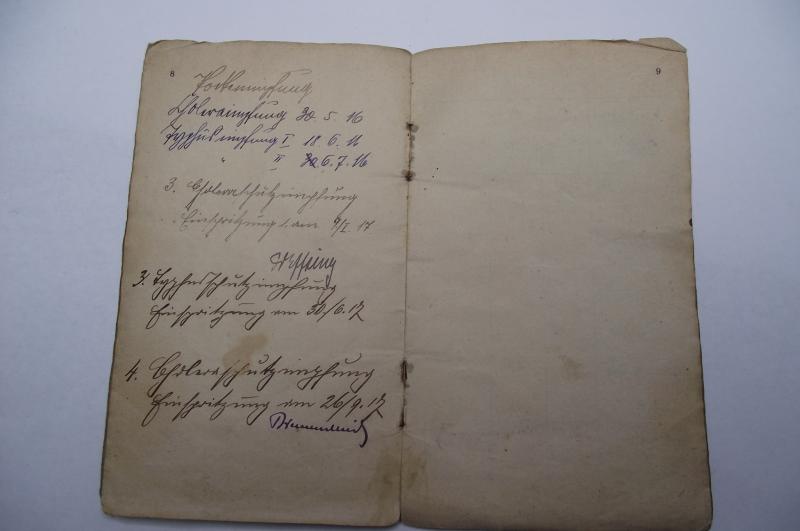 8
Pockenimpfung
Choleraimpfung 30 5 16
Typhusimpfung I 18. 6. 16
" II 6. 7. 16
3. Choleraschutzimpfung
Einspritzung 1. am 9/I. 17
3. Typhusschutzimpfung
Einspritzung am 30/6. 17
4. Choleraschutzimpfung
Einspritzung am 26/9. 17
9